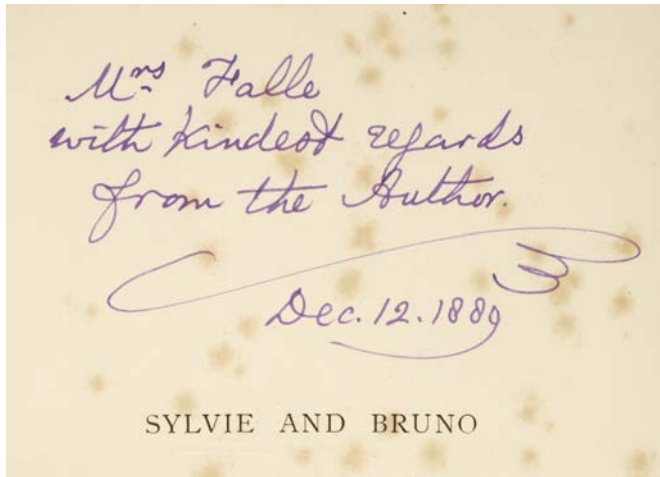 Mrs Falle
with kindest regards
from the Author.
Dec. 12. 1889
SYLVIE AND BRUNO